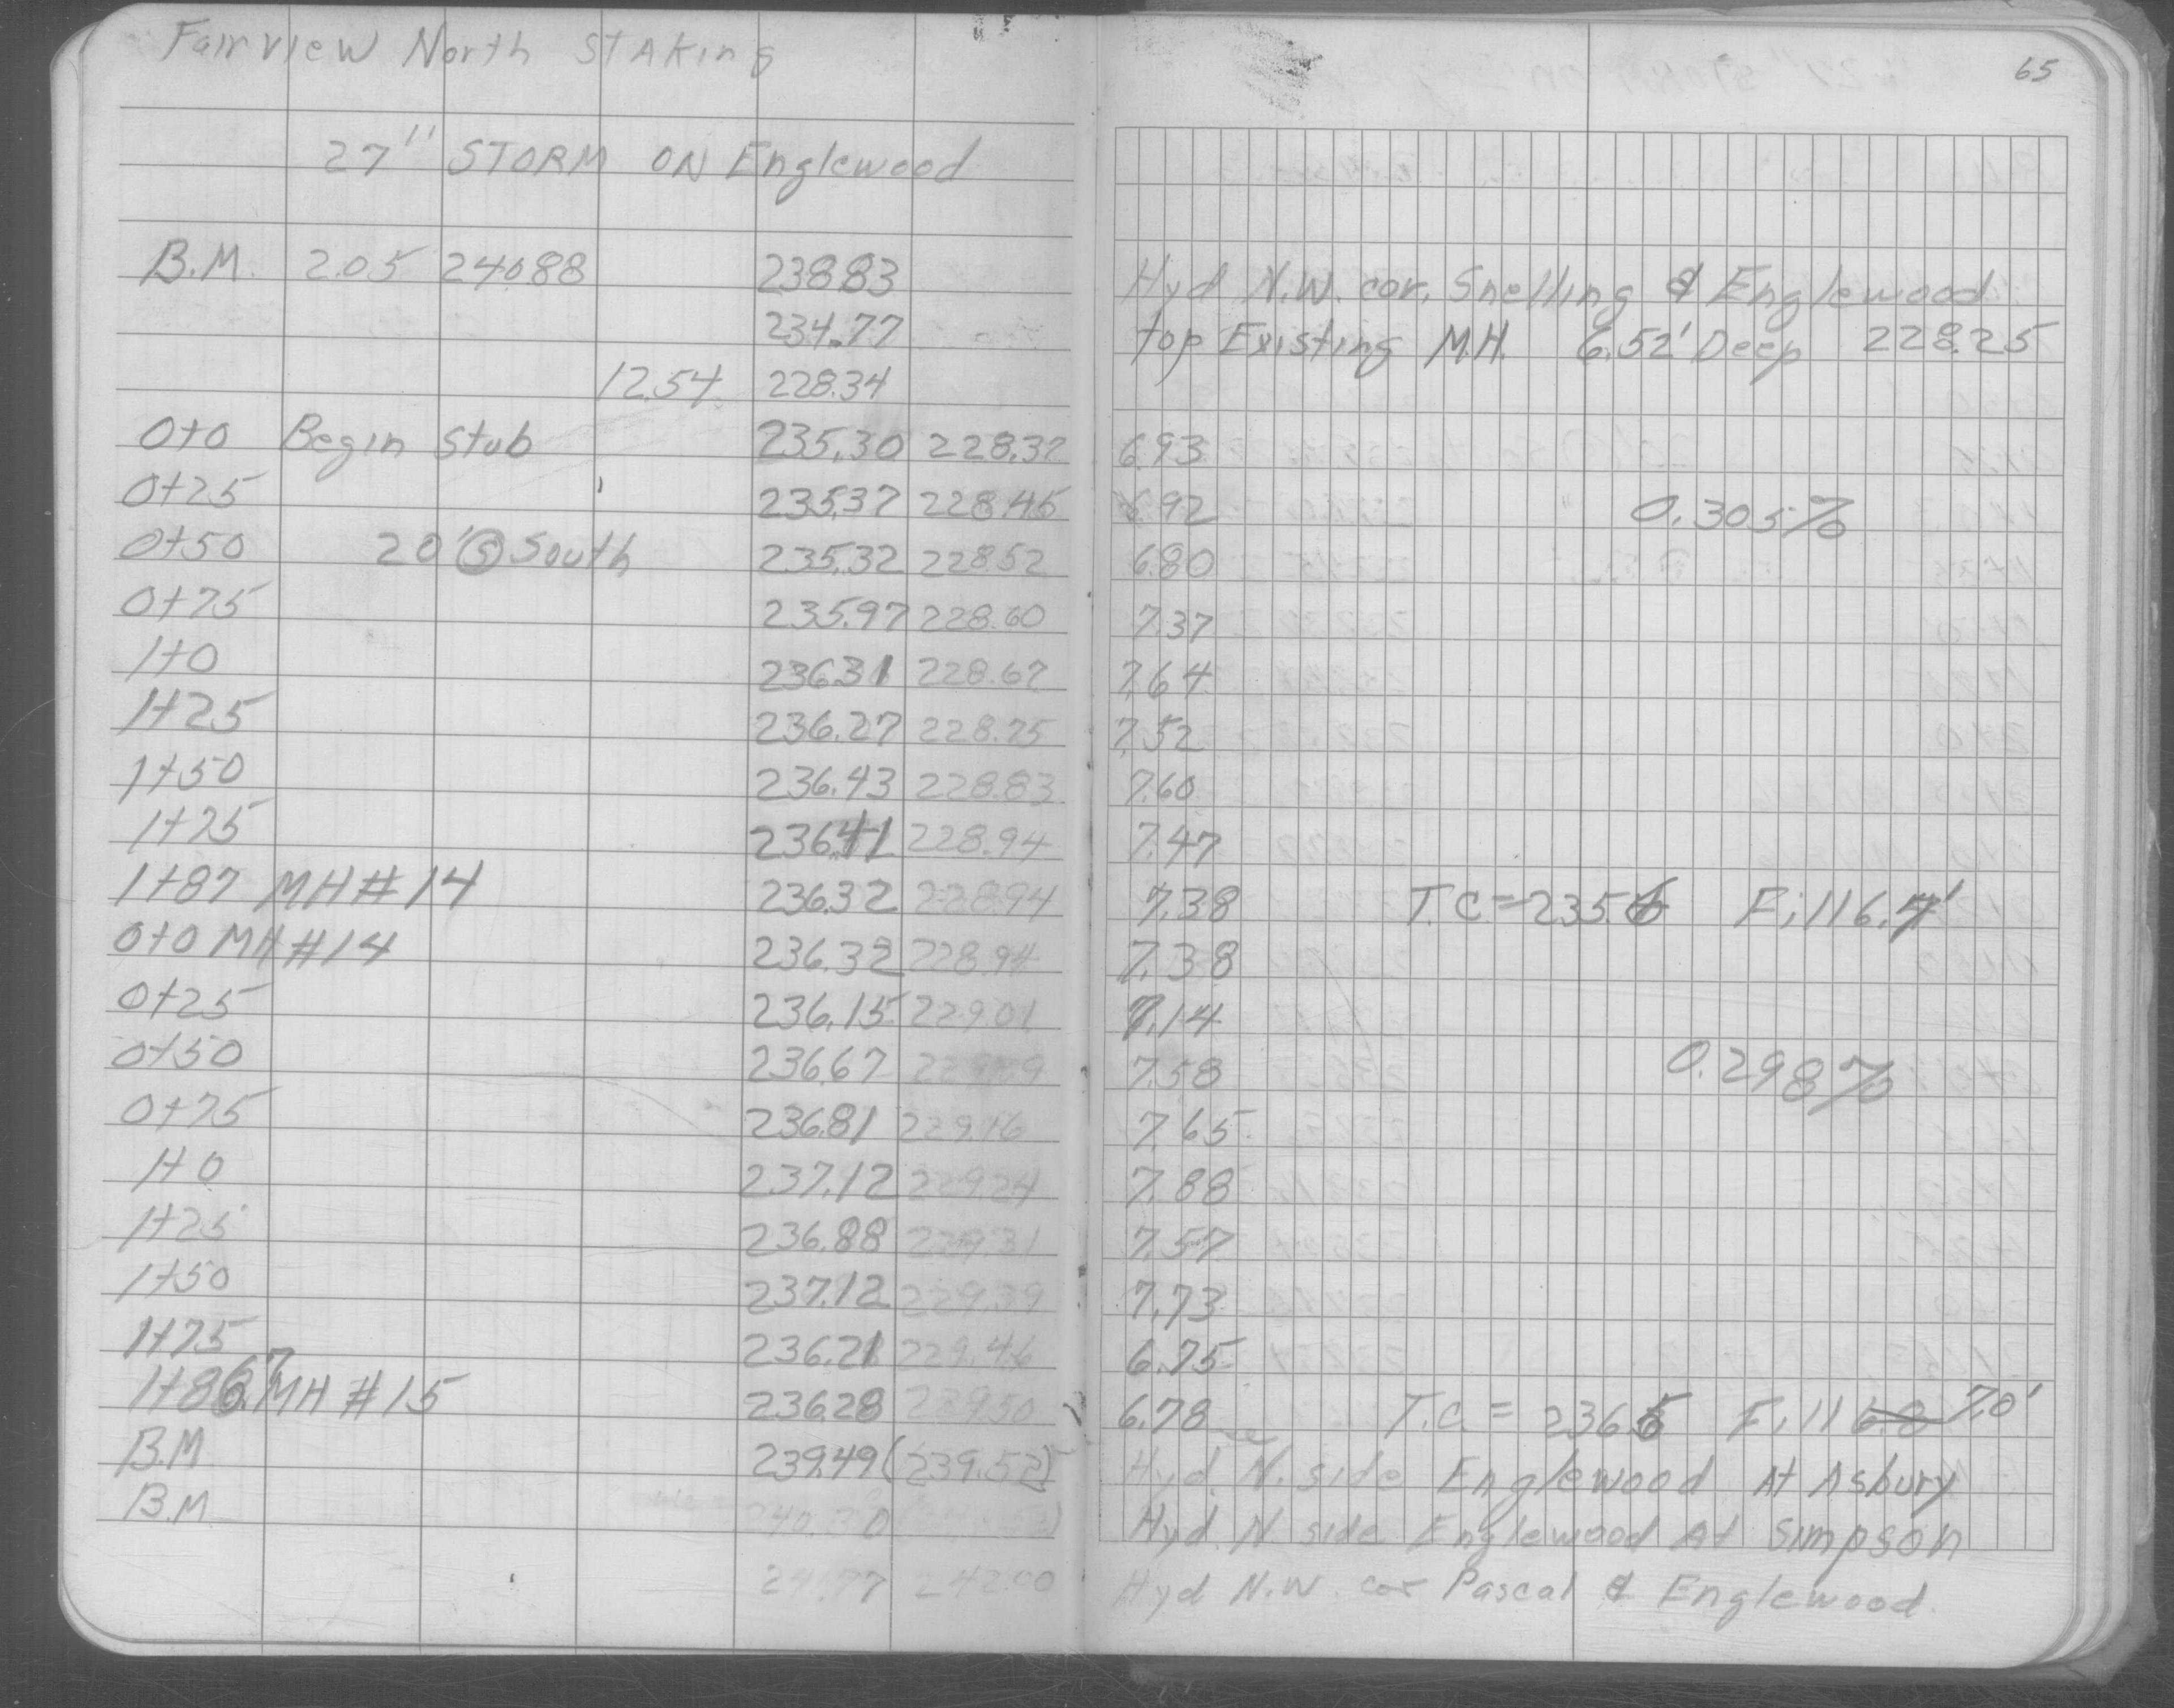 65
Fairview North Staking
27" STORM ON Englewood
B.M. 2.05 240.88 238.83 Hyd N.W. cor. Snelling & Englewood
234.77 top Existing M.H. 6.52' Deep 228.25
12.54 228.34
0+0 Begin Stub 235.30 228.37 6.93
0+25 235.37 228.45 6.92 0.305%
0+50 20' @ South 235.32 228.52 6.80
0+75 235.97 228.60 7.37
1+0 236.31 228.67 7.64
1+25 236.27 228.75 7.52
1+50 236.43 228.83 7.60
1+75 236.41 228.94 7.47
1+87 MH #14 236.32 228.94 7.38 T.C.=235.6 Fill 6.7'
0+0 MH #14 236.32 228.94 7.38
0+25 236.15 229.01 7.14
0+50 236.67 229.09 7.58 0.298%
0+75 236.81 229.16 7.65
1+0 237.12 229.24 7.88
1+25 236.88 229.31 7.57
1+50 237.12 229.39 7.73
1+75 236.21 229.46 6.75
1+86.7 MH #15 236.28 229.50 6.78 T.C.= 236.5 Fill 6.8 7.0'
B.M 239.49 (239.52) Hyd. N. side Englewood At Asbury
B.M. Hyd N side Englewood At Simpson
242.00 Hyd N.W. cor Pascal & Englewood